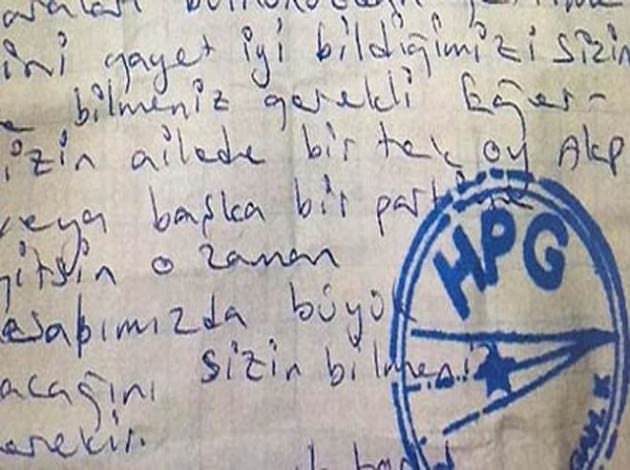 ini gayet iyi bildiğimizi sizin
bilmeniz gerekli Eğer-
izin ailede bir tek oy AKP
veya başka bir partiye
gitsin o zaman
esabımızda büyük
acağını sizin bilmeniz
erekir.
HPG